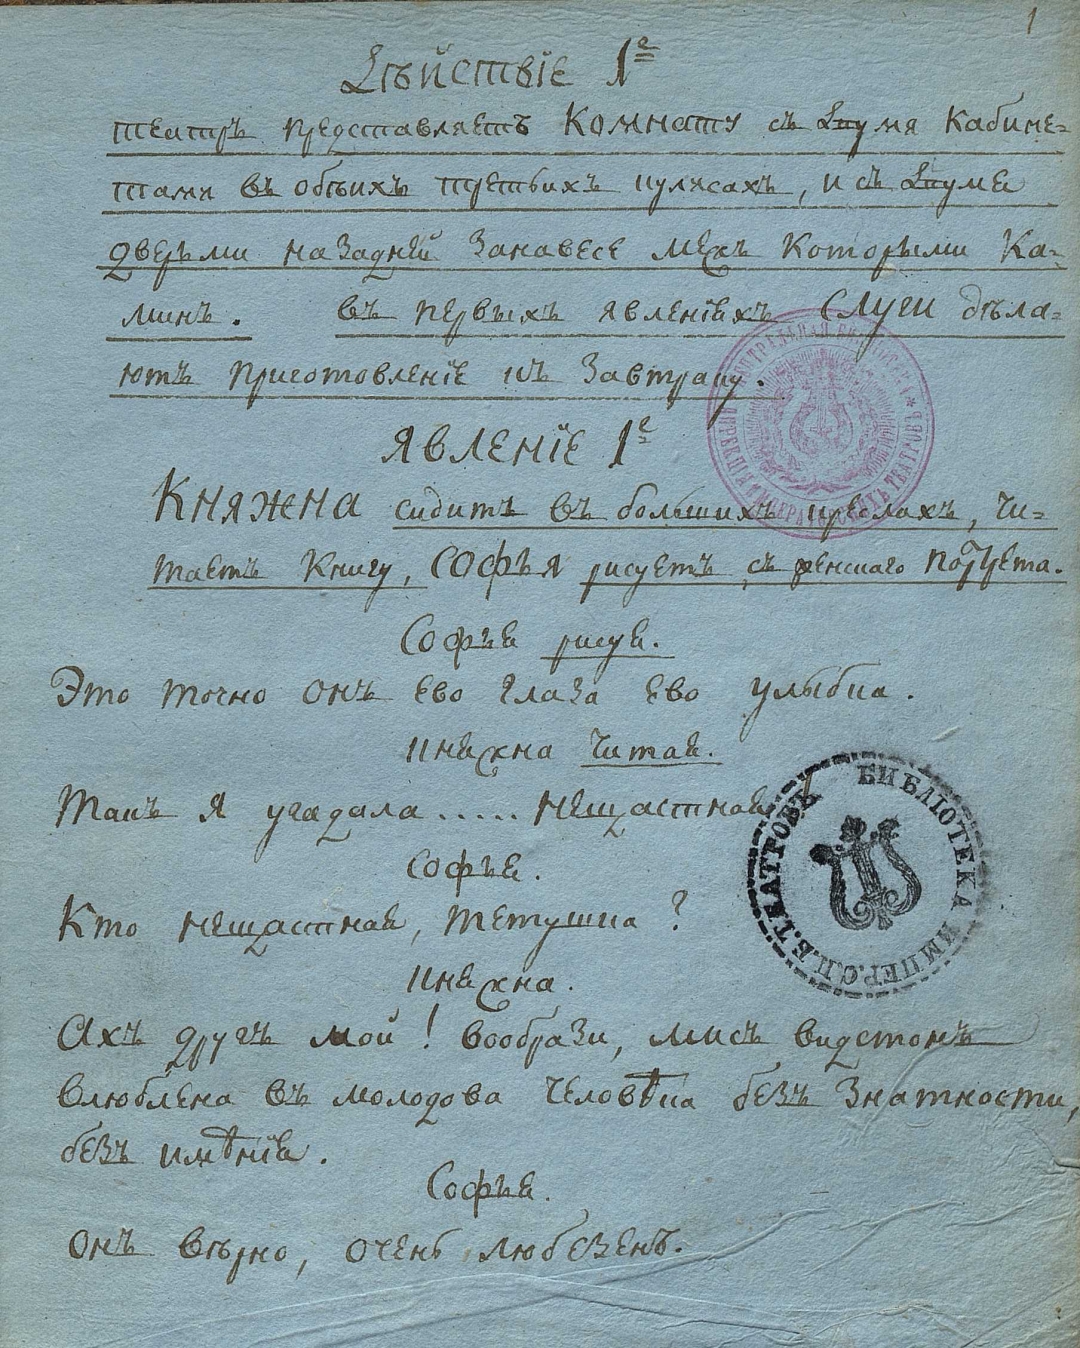 1
Дѣйствіе 1е
театръ представляетъ Комнату съ Двумя Кабине=
тами въ обѣихъ третьихъ кулясахъ, и съ Двумя
дверьми на Задней Занавесе межъ Которыми Ка-
минъ. въ первыхъ явленіяхъ Слуги дѣла=
ютъ приготовленіе къ Завтраку.
Явленіе 1е
Княжна сидитъ въ большихъ креслахъ, Чи-
таетъ Книгу, Софья рисуетъ съ женскаго портрета.
Софья рисуя.
Это точно онъ ево глаза ево улыбка.
Княжна Читая.
Такъ я угадала ..... Нещастная
Софья.
Кто нещастная, тетушка?
Княжна.
Ахъ другъ мой! вообрази, мисъ видстонъ
влюблена въ молодова человѣка безъ Знатности,
безъ имѣнія.
Софья.
онъ вѣрно, очень любезенъ.
БИБЛІОТЕКА ИМПЕР. С.П.Б. ТЕАТРОВЪ